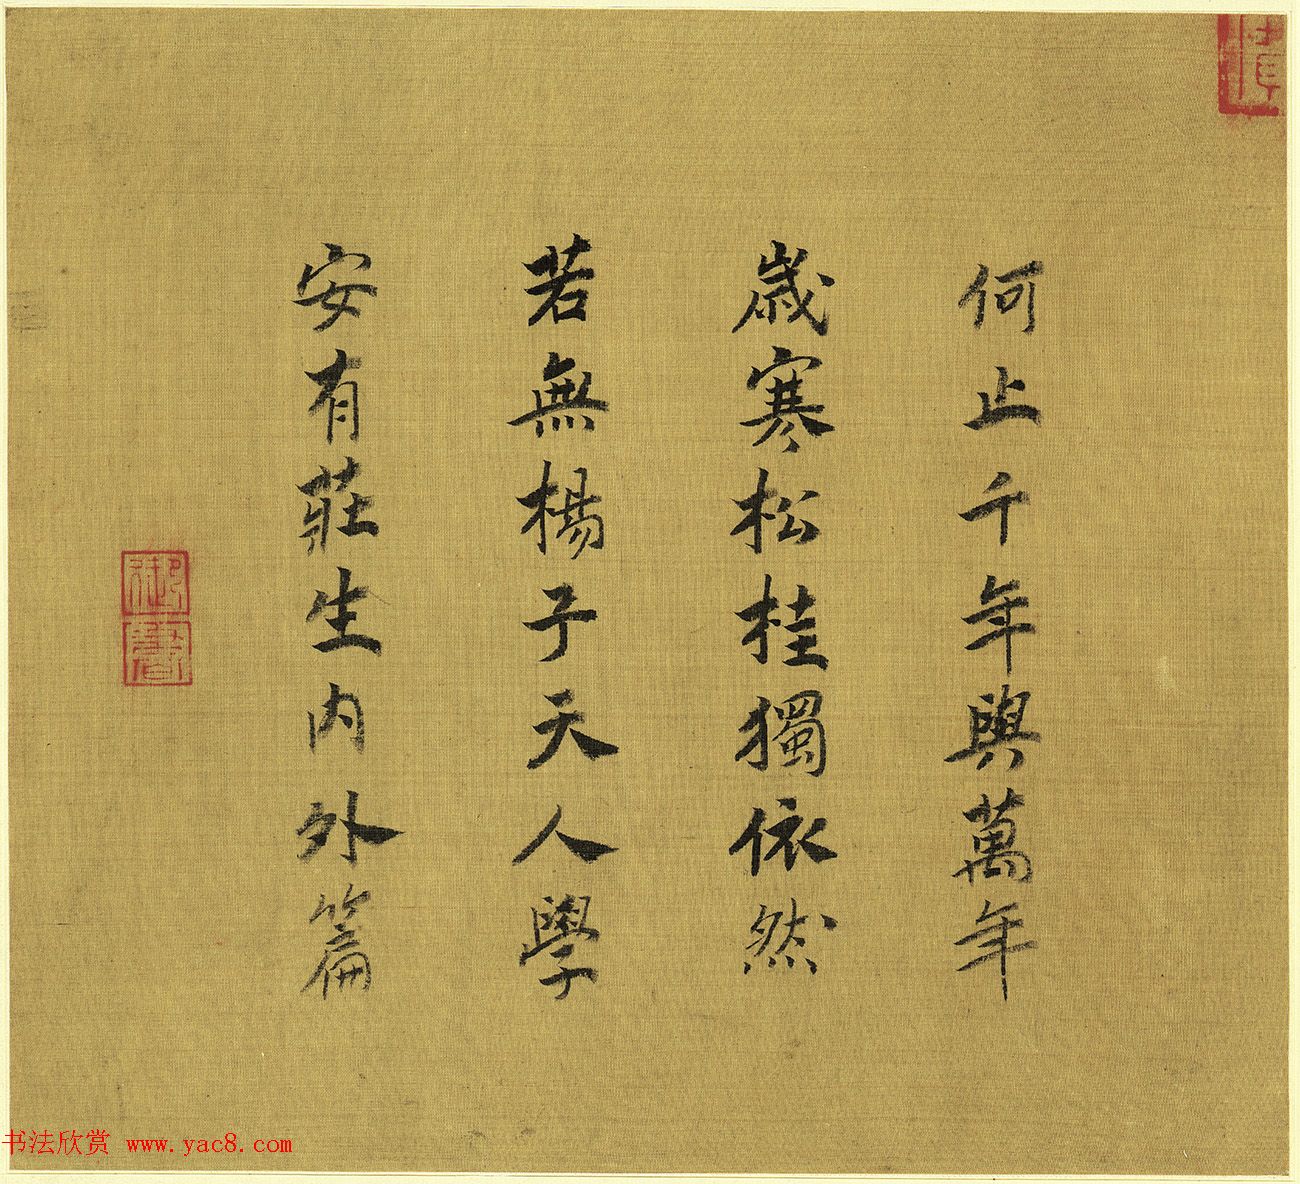 何止千年與萬年
歲寒松桂獨依然
若無楊子天人學
安有莊生内外篇
御書
书法欣赏 www.yac8.com